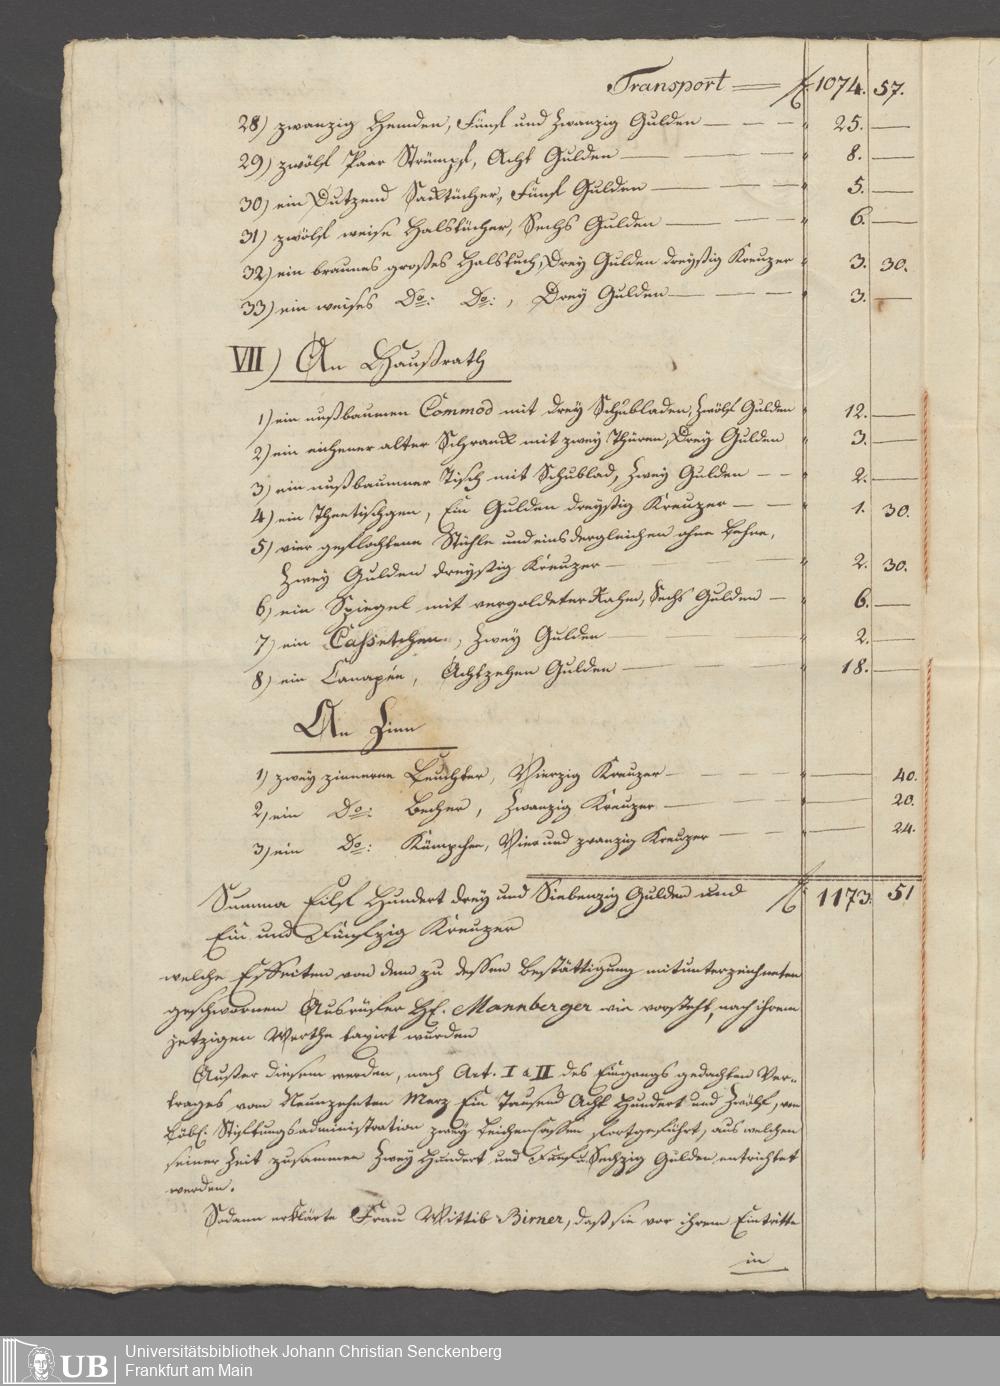 Transport = f. 1074. 57.
28) zwanzig Hemden, Fünf und Zwanzig Gulden — — — " 25. —
29) zwölf Paar Strümpf, Acht Gulden — — — " 8. —
30) ein Dutzend Sacktücher, Fünf Gulden — — — " 5. —
31) zwölf weise Halstücher, Sechs Gulden — — — " 6. —
32) ein braunes großes Halstuch, Drey Gulden dreyßig Kreuzer " 3. 30.
33) ein weises Do: Do:, Drey Gulden — — — " 3. —
VII) An Haußrath
1) ein nußbaumen Commod mit drey Schubladen, Zwölf Gulden " 12. —
2) ein eichener alter Schrank mit zwey Thüren, Drey Gulden " 3. —
3) ein nußbaumner Tisch mit Schublad, Zwey Gulden — — " 2. —
4) ein Theetischgen, Ein Gulden dreyßig Kreuzer — — " 1. 30.
5) vier geflochtene Stühle und eins dergleichen ohne Lehne,
Zwey Gulden dreyßig Kreuzer — — — " 2. 30.
6) ein Spiegel mit vergoldeter Rahm, Sechs Gulden — " 6. —
7) ein Cassetchen, Zwey Gulden — — — " 2. —
8) ein Canapée, Achtzehen Gulden — — — " 18. —
An Zinn
1) zwey zinnerne Leuchter, Vierzig Kreuzer — — — " — 40.
2) ein Do: Becher, Zwanzig Kreuzer — — — " — 20.
3) ein Do: Kümpchen, Vier und zwanzig Kreuzer — — " — 24.
Summa Eilf Hundert drey und Siebenzig Gulden und f. 1173. 51
Ein und Fünfzig Kreuzer
welche Effecten von dem zu dessen Bestättigung mitunterzeichneten
geschwornen Ausrüfer H. Mannberger wie vorsteht, nach ihrem
jetzigen Werthe taxirt wurden
Außer diesem werden, nach Art. I & II des Eingangs gedachten Ver-
trages vom Neunzehnten Merz Ein Tausend Acht Hundert und Zwölf, von
Löbl: Stiftungsadministration zwey Leichencassen fortgeführt, aus welchen
seiner Zeit zusammen Zwey Hundert und Fünf u. Sechzig Gulden entrichtet
werden.
Sodann erklärte Frau Wittib Birner, daß sie vor ihrem Eintritte
in
Universitätsbibliothek Johann Christian Senckenberg
Frankfurt am Main
UB